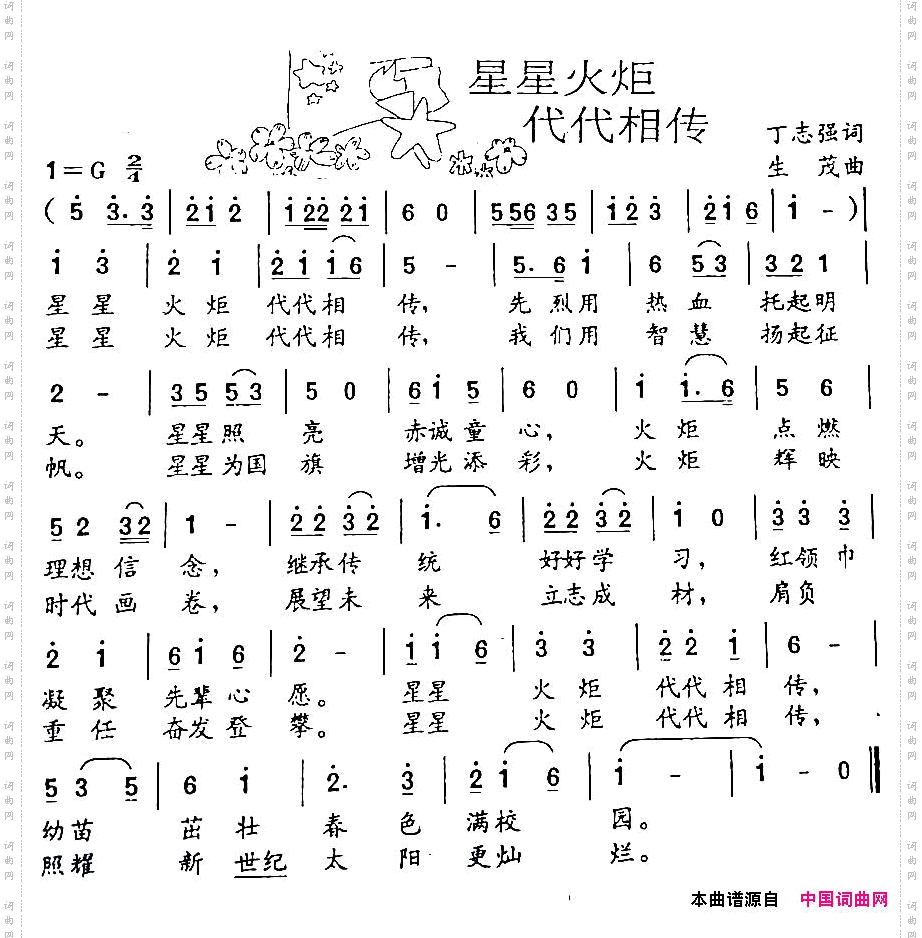 星星火炬
代代相传
丁志强词
生 茂曲
1=G 2/4
( 5 3. 3 | 2 1 2 | 1 2 2 2 1 | 6 0 | 5 5 6 3 5 | 1 2 3 | 2 1 6 | 1 - ) |
1 3 | 2 1 | 2 1 1 6 | 5 - | 5. 6 1 | 6 5 3 | 3 2 1 |
星星 火炬 代代相 传, 先烈用 热血 托起明
星星 火炬 代代相 传, 我们用 智慧 扬起征
2 - | 3 5 5 3 | 5 0 | 6 1 5 | 6 0 | 1 1. 6 | 5 6 |
天。 星星照 亮 赤诚童 心, 火炬 点燃
帆。 星星为国 旗 增光添 彩, 火炬 辉映
5 2 3 2 | 1 - | 2 2 3 2 | 1. 6 | 2 2 3 2 | 1 0 | 3 3 3 |
理想信 念, 继承传 统 好好学 习, 红领巾
时代画 卷, 展望未 来 立志成 材, 肩负
2 1 | 6 1 6 | 2 - | 1 1 6 | 3 3 | 2 2 1 | 6 - |
凝聚 先辈心 愿。 星星 火炬 代代相 传,
重任 奋发登 攀。 星星 火炬 代代相 传,
5 3 5 | 6 1 | 2. 3 | 2 1 6 | 1 - | 1 - 0 ||
幼苗 茁壮 春色 满校 园。
照耀 新世纪 太阳 更灿 烂。
本曲谱源自 中国词曲网